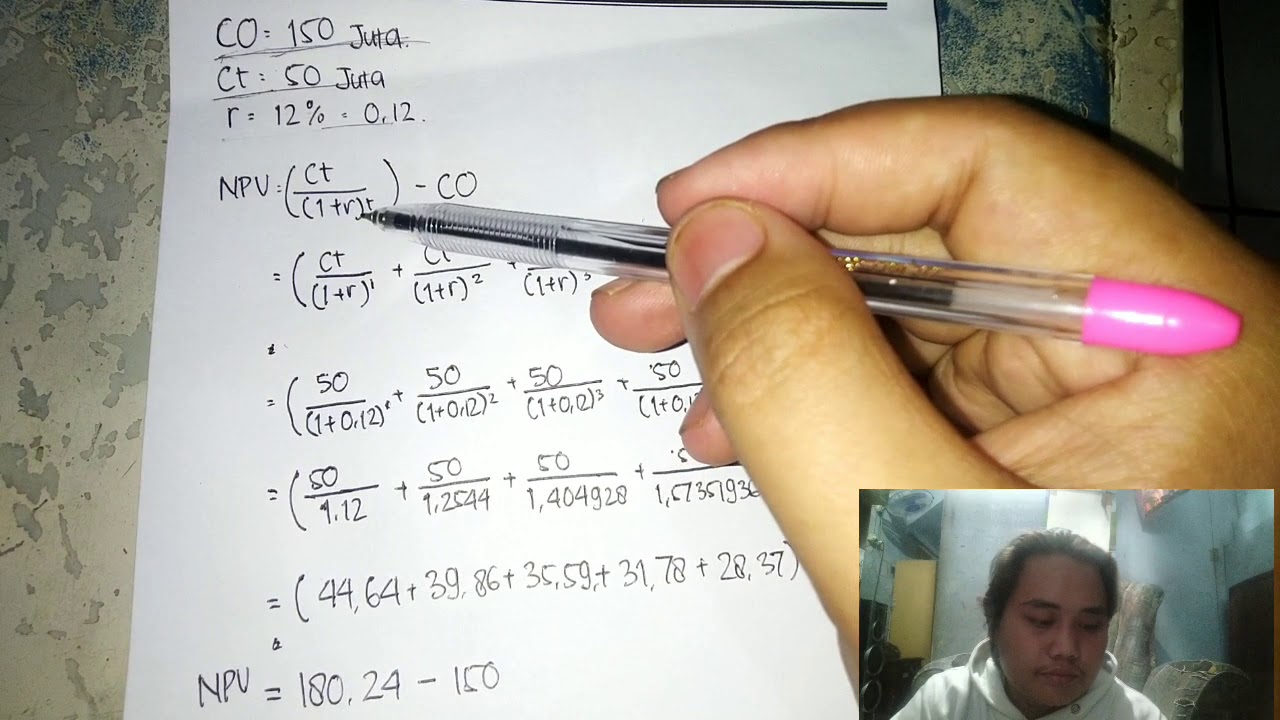 CO = 150 Juta.
Ct = 50 Juta
r = 12% = 0,12.
NPV = (Ct/(1+r)t) - CO
= (Ct/(1+r)¹ + Ct/(1+r)² + /(1+r)³
= (50/(1+0,12)¹ + 50/(1+0,12)² + 50/(1+0,12)³ + 50/(1+0,12
= (50/1.12 + 50/1,2544 + 50/1,404928 + 5/1,57351936
= (44,64 + 39,86 + 35,59, + 31,78 + 28,37)
NPV = 180,24 - 150